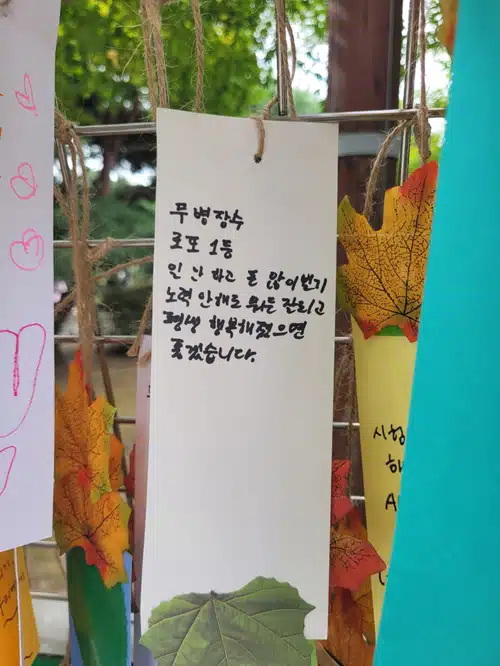 무병장수
로또 1등
인 난 하고 돈 많이 벌기
노력 안해도 뭐든 잘되고
평생 행복해졌으면
좋겠습니다.
시험
하
A